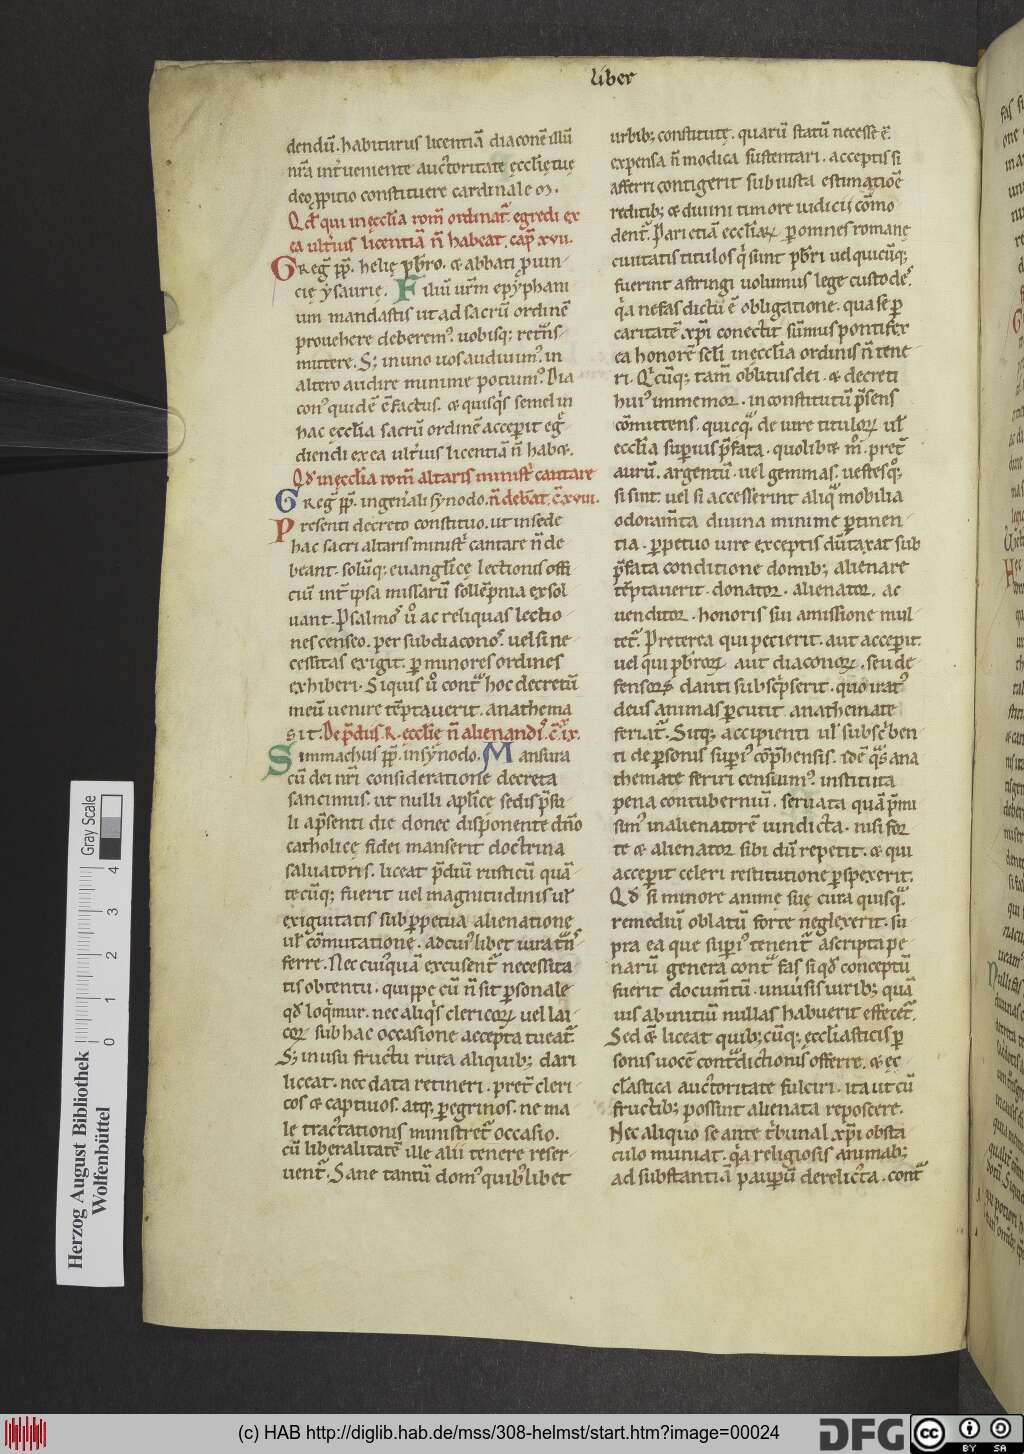 liber
dendū. habiturus licentiā diaconē illū
nr̄a int̓ueniente auctoritate ęcclię tuę
deo ꝓpitio constituere cardinalem.
Qd̄ qui in ęccl̄ia rom̄ ordinat̄ egredi ex
ea ult̓ius licentiā n̄ habeat. cap̄ xvii.
Greg̓ pp̄. helię pb̄ro. & abbati ꝓuin-
cię ẏsaurie. Filiū ur̄m epẏphani
um mandastis ut ad sacrū ordinē
prouehere deberem᷒. uobisq; retn̄s-
mittere. S; in uno uos audiuim᷒. in
altero audire minime potuim᷒. Dia
con᷒ quidē ē factus. & quisq̓s semel in
hac ęccl̄ia sacrū ordinē acceꝑit eg̓
diendi ex ea ult̓ius licentiā n̄ hab&.
Qd̄ in ęccl̄ia rom̄ altaris minist̓ cantare
Greg̓ pp̄. in gen̓ali sẏnodo. n̄ debeat. c̄. xviii.
Presenti decreto constituo. ut in sede
hac sacri altaris minist̓ cantare n̄ de
beant. solūq; euanglicę lectionis offi
ciū int̓ ipsa missarū sollēpnia exsol
uant. Psalmos uͦ ac reliquas lectio
nes censeo. per subdiaconos. uel si ne
cessitas exigit. ꝑ minores ordines
exhiberi. Siquis uͦ contᵃ hoc decretū
meū uenire tēptauerit. anathema
sit. De p̄diis R. ecclię n̄ alienandis. c̄. ix.
Simmachus pp̄. in sẏnodo. Mansura
cū dei nr̄i consideratione decreta
sancimus. ut nulli apl̄ice sedis p̄su
li a p̄senti die donec disponente dn̄o
catholicę fidei manserit doctrina
saluatoris. liceat p̄diū rusticū quā
tecūq; fuerit uel magnitudinis ul̄
exiguitatis sub ꝑpetua alienatione
ul̄ cōmutatione. ad cui᷒libet iura tn̄s
ferre. Nec cui᷒quā excusent̄ necessita
tis obtentu. quippe cū n̄ sit ꝑsonale
qd̄ loq̓mur. nec aliq̓s clericoꝝ uel lai
coꝝ sub hac occasione accepta tueat̄.
S; in usu fructu rura aliquib; dari
liceat. nec data retineri. pret̄ cleri
cos & captiuos. atq; ꝑegrinos. ne ma
le tractationis ministret̄ occasio.
cū liberalitatē ille alii tenere reser
uent̄. Sane tantū dom᷒ quib᷒libet
urbib; constitutę. quarū statū necesse ē.
expensa n̄ modica sustentari. acceptis si
afferri contigerit sub iusta estimatiōe
reditib; & diuini timore iudicii cōmo
dent̄. Pari etiā eccliaꝝ ꝑ omnes romanę
ciuitatis titulos q̓ sunt pb̄ri uel quicūq;
fuerint astringi uolumus lege custodes.
q̓a nefas dictū ē obligatione. qua se ꝑ
caritatē xp̄i conectit sūmus pontifex
ea honorē scl̄i in ęccl̄ia ordinis n̄ tene
ri. Q̓cūq; tam̄ oblitus dei. & decreti
hui᷒ immemor. in constitutū p̄sens
cōmittens. quicq̓. de iure tituloꝝ ul̄
ecclia superius p̄fata. quolib& m̊. pret̄
aurū. argentū. uel gemmas. uestesq;
si sint. uel si accesserint aliq̓ mobilia
odoram̄ta diuina minime ꝑtinen-
tia. ꝑpetuo iure exceptis dūtaxat sub
p̄fata conditione domib; alienare
tēptauerit. donator. alienator. ac
uenditor. honoris sui amissione mul
tet̄. Preterea qui petierit. aut acceꝑit.
uel qui pb̄roꝝ aut diaconoꝝ. seu de
fensoꝝ danti subscp̓serit. quo irat᷒
deus animas ꝑcutit anathemate
feriat̄. Sitq; accipienti ul̄ subsc̓ben
ti de ꝑsonis superi᷒ cōp̄hensis. idē q̓s ana
themate feriri censuim᷒. instituta
pena contuberniū. seruata quā p̄mi
sim᷒ in alienatorē uindicta. nisi for
te & alienator sibi dū repetit. & qui
acceꝑit celeri restitutione ꝑspexerit.
Qd̄ si minore anime suę cura quisq̓.
remediū oblatū forte neglexerit. su
pra ea que superi᷒ tenent̄ ascripta pe
narū genera contᵃ fas si qd̄ conceptū
fuerit docum̄tū. uniu̓sis uirib; quā
uis ab initiū nullas habuerit effecet̄.
Sed & liceat quib;cūq; ęccl̄iasticis ꝑ
sonis uocē contᵃdictionis offerre. & ęc
cl̄astica auctoritate fulciri. ita ut cū
fructib; possint alienata reposcere.
Nec aliquo se ante t̓bunal xp̄i obsta
culo muniat. q̓a religiosis animab;
ad substantiā pauꝑū derelicta. contᵃ
Herzog August Bibliothek
Wolfenbüttel
Gray Scale
0 1 2 3 4
(c) HAB http://diglib.hab.de/mss/308-helmst/start.htm?image=00024
DFG
cc
BY SA